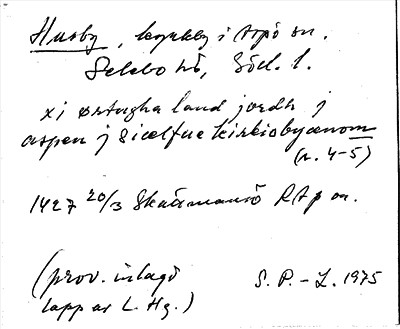 Husby, kyrkby i Aspö sn.
Selebo hd, Södl. l.
xi ørtugha land jordh j
aspen j siælfue kirkiobyænom
(r. 4-5)
1427 20/3 Skåmansö RAp or.
(prov. inlagd
lapp av L. Hg.)
S. P.-L. 1975